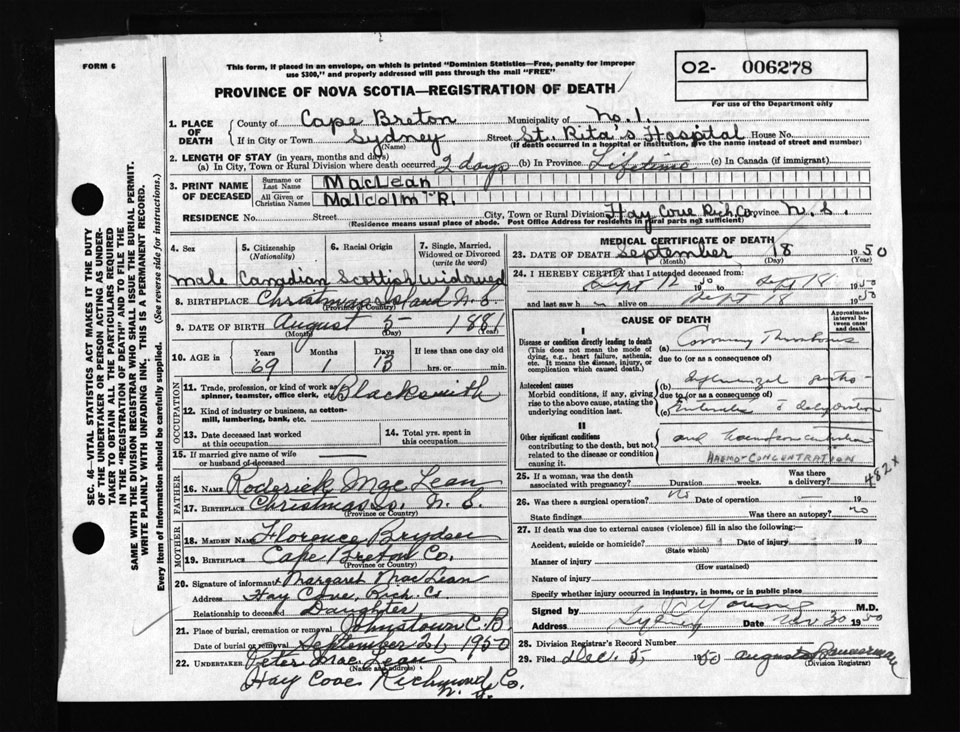 FORM 6
This form, if placed in an envelope, on which is printed "Dominion Statistics—Free, penalty for improper
use $300," and properly addressed will pass through the mail "FREE"
PROVINCE OF NOVA SCOTIA—REGISTRATION OF DEATH
O2- 006278
For use of the Department only
1. PLACE OF DEATH
County of Cape Breton Municipality of No. 1.
If in City or Town Sydney (Name) Street St. Rita's Hospital House No.
(If death occurred in a hospital or institution, give the name instead of street and number)
2. LENGTH OF STAY (in years, months and days)
(a) In City, Town or Rural Division where death occurred 2 days (b) In Province Lifetime (c) In Canada (if immigrant)
3. PRINT NAME OF DECEASED
Surname or Last Name MacLean
All Given or Christian Names Malcolm R.
RESIDENCE No. Street City, Town or Rural Division Hay Cove Rich Co Province N.S.
(Residence means usual place of abode. Post Office Address for residents in rural parts not sufficient)
4. Sex
male
5. Citizenship (Nationality)
Canadian
6. Racial Origin
Scottish
7. Single, Married, Widowed or Divorced (write the word)
widowed
8. BIRTHPLACE Christmas Island N.S.
(Province or Country)
9. DATE OF BIRTH August 5 1881
(Month) (Day) (Year)
10. AGE in Years Months Days If less than one day old
69 1 13 hrs. or min.
OCCUPATION
11. Trade, profession, or kind of work as spinner, teamster, office clerk, etc. Blacksmith
12. Kind of industry or business, as cotton-mill, lumbering, bank, etc.
13. Date deceased last worked at this occupation
14. Total yrs. spent in this occupation
15. If married give name of wife or husband of deceased —
FATHER
16. NAME Roderick MacLean
17. BIRTHPLACE Christmas Is. N.S.
(Province or Country)
MOTHER
18. MAIDEN NAME Florence Bryden
19. BIRTHPLACE Cape Breton Co.
(Province or Country)
20. Signature of informant Margaret MacLean
Address Hay Cove, Rich. Co.
Relationship to deceased Daughter
21. Place of burial, cremation or removal Johnstown C.B.
Date of burial or removal September 21 1950
22. UNDERTAKER Peter MacLean
(Name and address)
Hay Cove Richmond Co.
N.S.
MEDICAL CERTIFICATE OF DEATH
23. DATE OF DEATH September 18 1950
(Month) (Day) (Year)
24. I HEREBY CERTIFY that I attended deceased from:
Sept 12 1950 to Sept 18 1950
and last saw h alive on Sept 18 1950
CAUSE OF DEATH
Approximate interval between onset and death
I
Disease or condition directly leading to death
(This does not mean the mode of dying, e.g., heart failure, asthenia, etc. It means the disease, injury, or complication which caused death.)
(a) Coronary Thrombosis
due to (or as a consequence of)
Antecedent causes
Morbid conditions, if any, giving rise to the above cause, stating the underlying condition last.
(b) Influenzal gastro-
due to (or as a consequence of)
(c) Enteritis c dehydration
II
Other significant conditions
contributing to the death, but not related to the disease or condition causing it.
and haemoconcentration
HAEMO-CONCENTRATION
482x
25. If a woman, was the death associated with pregnancy? Duration weeks. Was there a delivery?
26. Was there a surgical operation? No Date of operation — 19
State findings Was there an autopsy? no
27. If death was due to external causes (violence) fill in also the following:—
Accident, suicide or homicide? (State which) Date of injury 19
Manner of injury
(How sustained)
Nature of injury
Specify whether injury occurred in industry, in home, or in public place
Signed by M.D.
Address Sydney Date Nov 30 1950
28. Division Registrar's Record Number
29. Filed Dec. 5, 1950
(Division Registrar)
SEC. 46—VITAL STATISTICS ACT MAKES IT THE DUTY
OF THE UNDERTAKER OR PERSON ACTING AS UNDER-
TAKER TO OBTAIN ALL THE PARTICULARS REQUIRED
IN THE "REGISTRATION OF DEATH" AND TO FILE THE
SAME WITH THE DIVISION REGISTRAR WHO SHALL ISSUE THE BURIAL PERMIT.
WRITE PLAINLY WITH UNFADING INK. THIS IS A PERMANENT RECORD.
Every item of information should be carefully supplied. (See reverse side for instructions.)